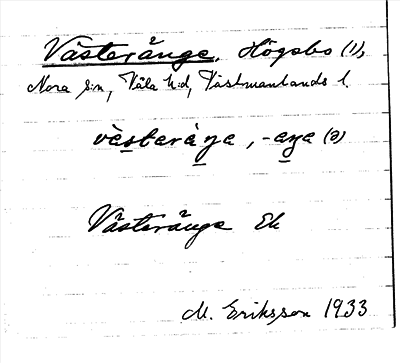 Västerånge, Högsbo (1),
Nora s:n, Våla h:d, Västmanlands l.
västeråŋe, -aŋe (2)
Västerånge Ek
M. Eriksson 1933